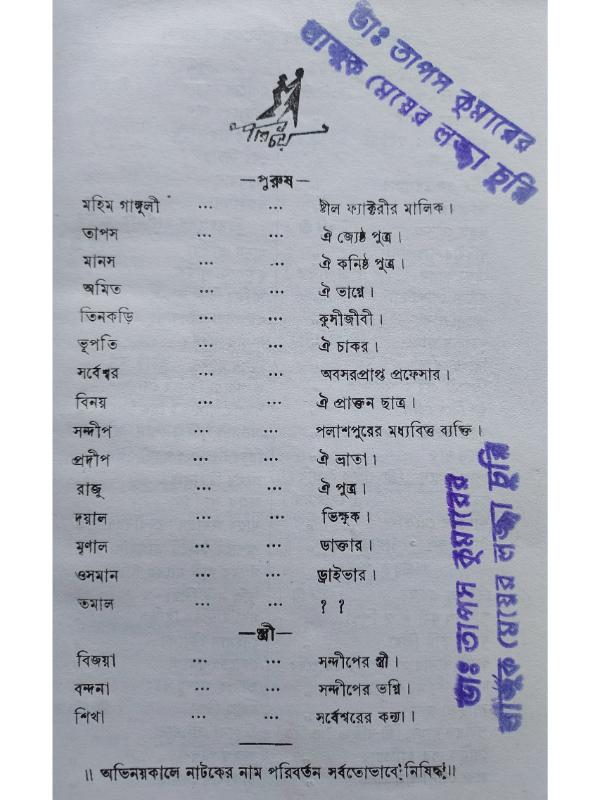 ডাঃ তাপস কুমারের
লাজুক মেয়ের লজ্জা চুরি
পরিচয়
—পুরুষ—
মহিম গাঙ্গুলী ... ... ষ্টীল ফ্যাক্টরীর মালিক।
তাপস ... ... ঐ জ্যেষ্ঠ পুত্র।
মানস ... ... ঐ কনিষ্ঠ পুত্র।
অমিত ... ... ঐ ভাগ্নে।
তিনকড়ি ... ... কুসীজীবী।
ভূপতি ... ... ঐ চাকর।
সর্বেশ্বর ... ... অবসরপ্রাপ্ত প্রফেসার।
বিনয় ... ... ঐ প্রাক্তন ছাত্র।
সন্দীপ ... ... পলাশপুরের মধ্যবিত্ত ব্যক্তি।
প্রদীপ ... ... ঐ ভ্রাতা।
রাজু ... ... ঐ পুত্র।
দয়াল ... ... ভিক্ষুক।
মৃণাল ... ... ডাক্তার।
ওসমান ... ... ড্রাইভার।
তমাল ... ... ? ?
—স্ত্রী—
বিজয়া ... ... সন্দীপের স্ত্রী।
বন্দনা ... ... সন্দীপের ভগ্নি।
শিখা ... ... সর্বেশ্বরের কন্যা।
॥ অভিনয়কালে নাটকের নাম পরিবর্তন সর্বতোভাবে নিষিদ্ধ ॥
ডাঃ তাপস কুমারের
লাজুক মেয়ের লজ্জা চুরি